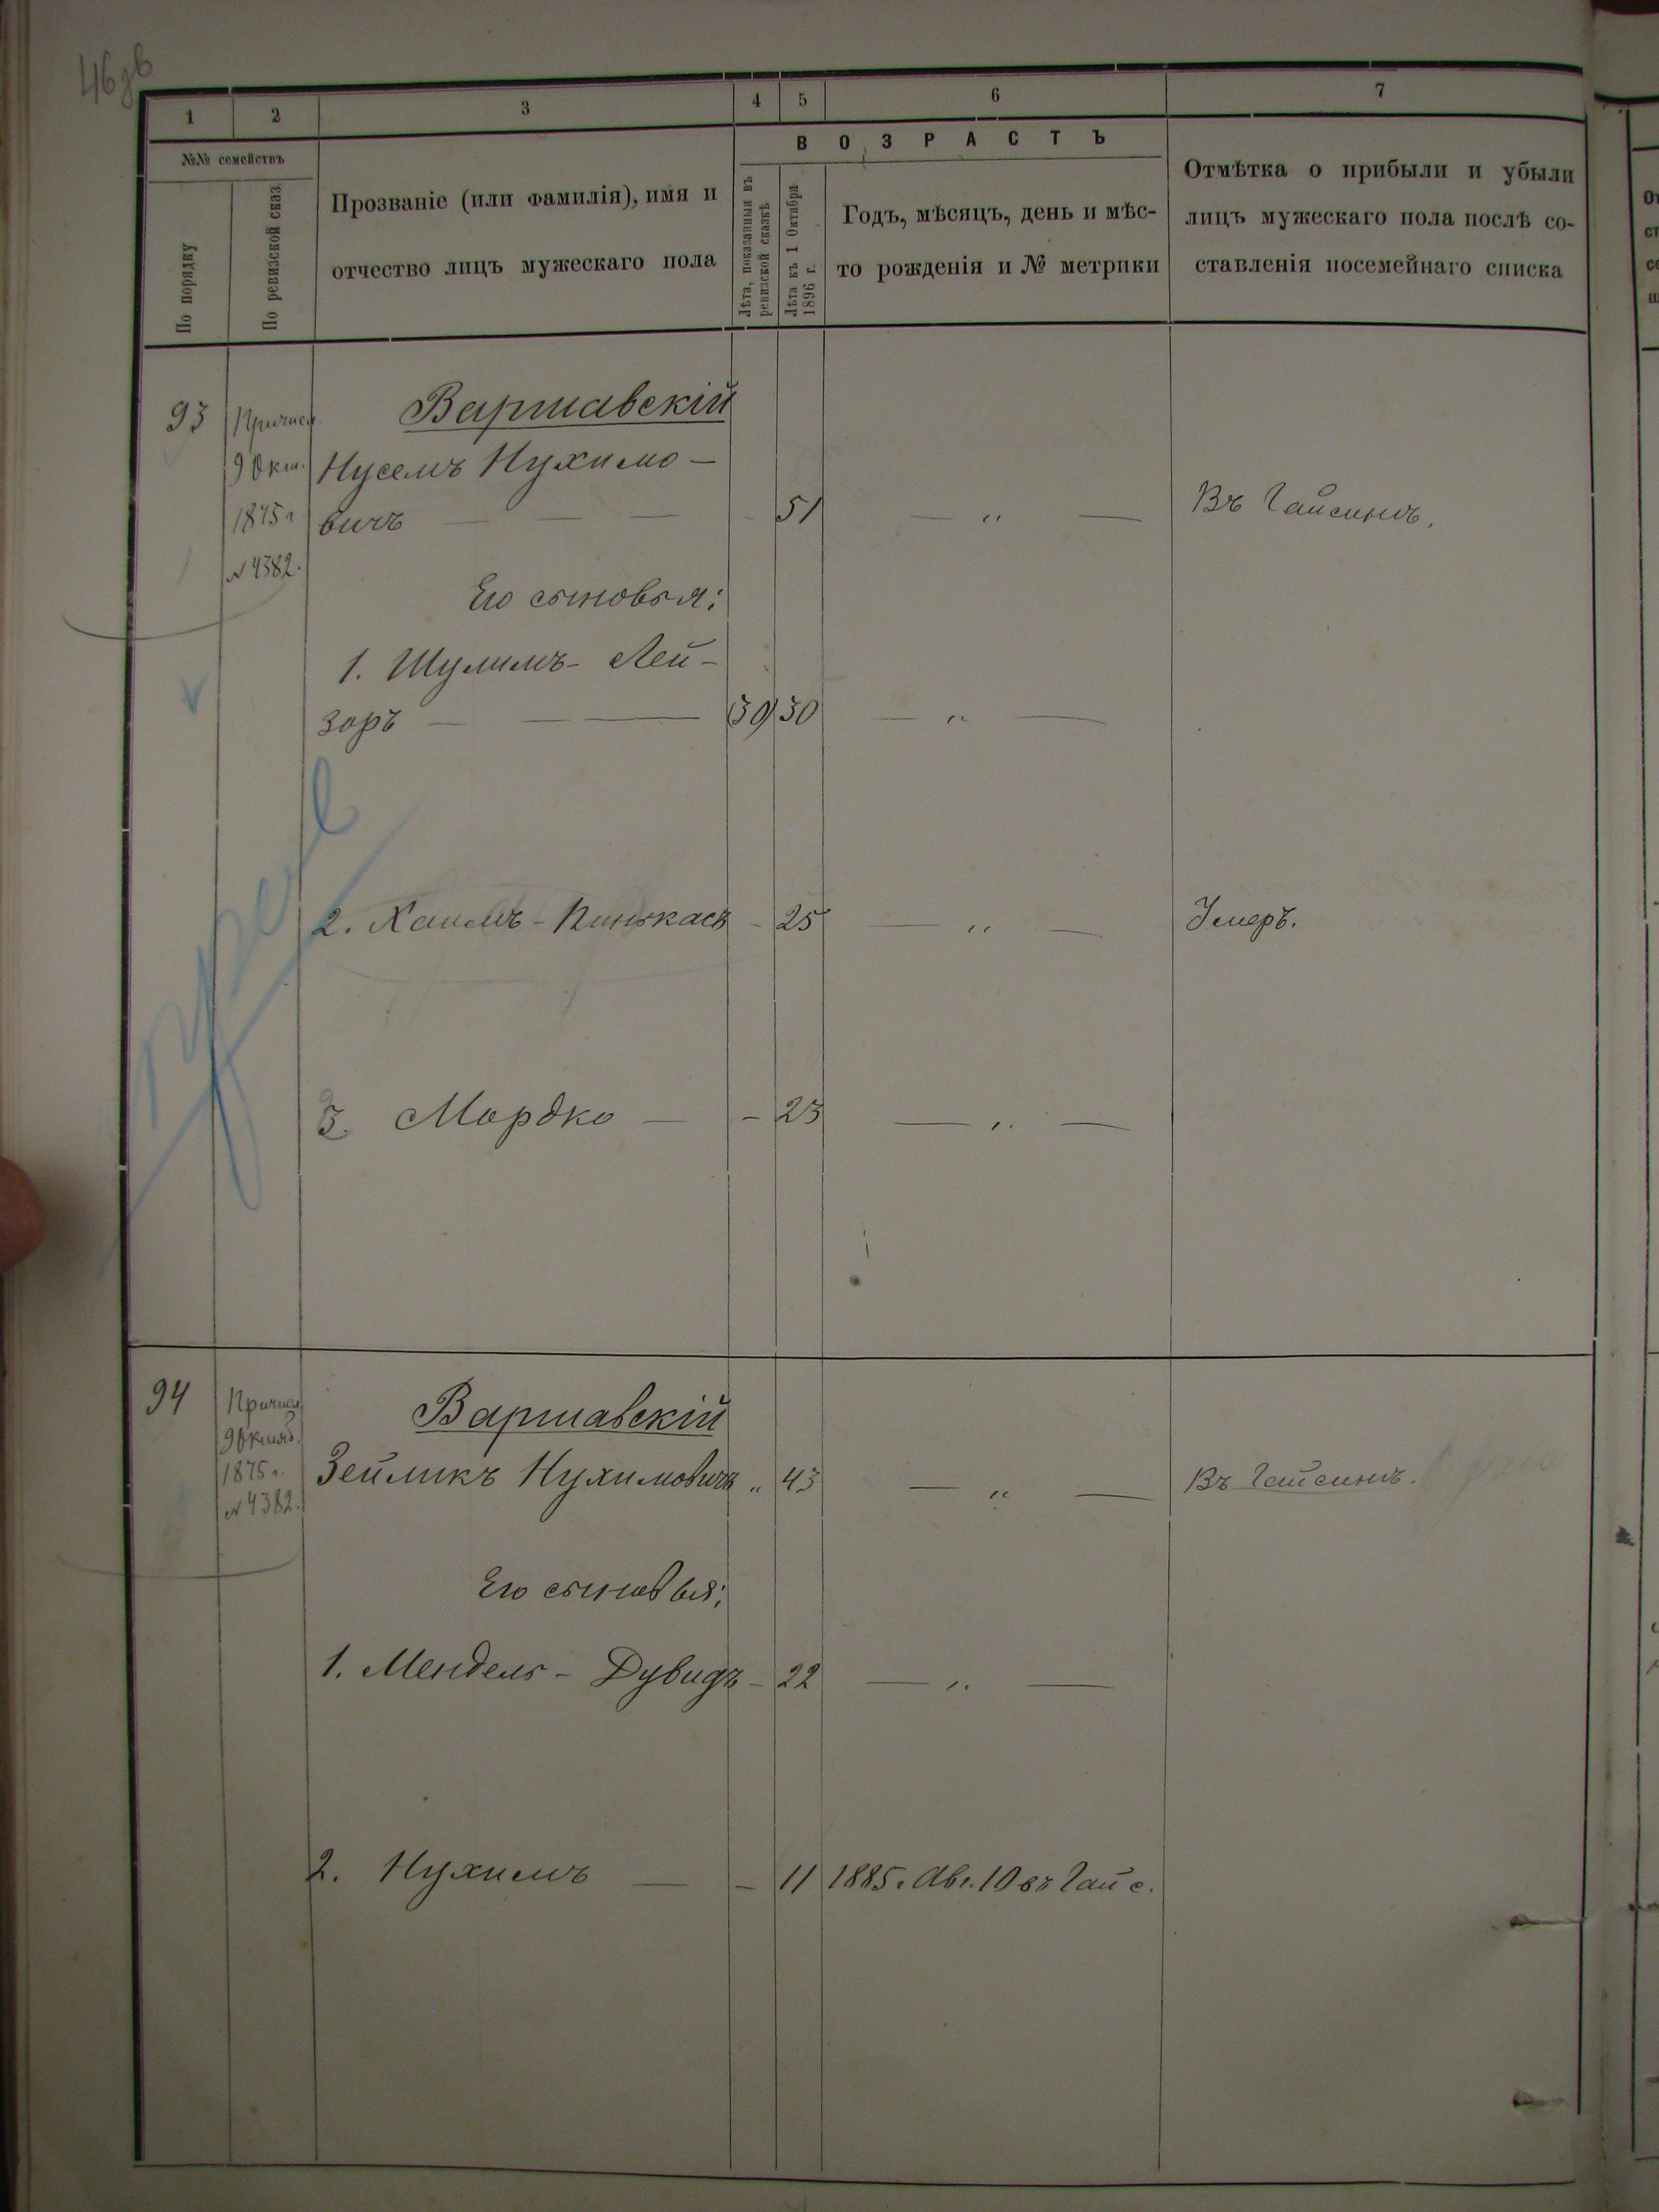 46 зв
1 2 3 4 5 6 7
№№ семействъ
По порядку
По ревизской сказ.
Прозваніе (или фамилія), имя и
отчество лицъ мужескаго пола
В О З Р А С Т Ъ
Лѣта, показанныя въ
ревизской сказкѣ
Лѣта къ 1 Октября
1896 г.
Годъ, мѣсяцъ, день и мѣс-
то рожденія и № метрики
Отмѣтка о прибыли и убыли
лицъ мужескаго пола послѣ со-
ставленія посемейнаго списка
93 Причисл. Варшавскій
9 Окт. Нусемъ Нухимо-
1875 г. вичъ — — — 51 — „ — Въ Гайсинѣ.
№ 4382.
Его сыновья:
1. Шулимъ - Лей-
зоръ — — (39) 30 — „ —
2. Хаимъ - Пинькасъ - 25 — „ — Умеръ.
3. Мордко — - 23 — „ —
94 Причисл. Варшавскій
9 Октяб.
1875 г. Зейликъ Нухимовичъ „ 43 — „ — Въ Гайсинѣ.
№ 4382.
Его сыновья:
1. Мендель - Дувидъ - 22 — „ —
2. Нухимъ — - 11 1885. Авг. 10 въ Гайс.